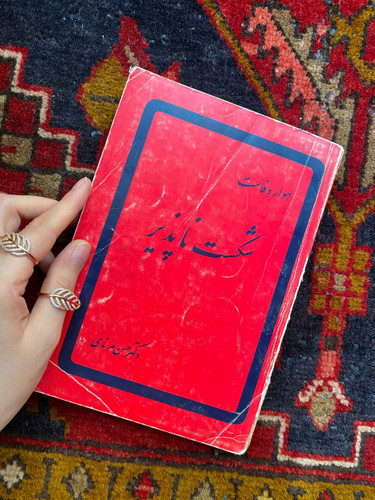 هوارد فاست
شکست ناپذیر
دکتر حسن مرندی